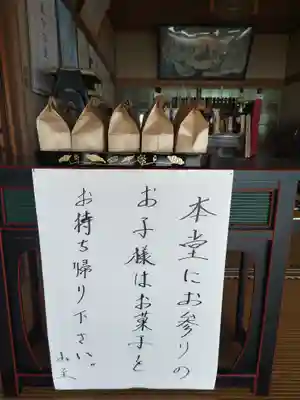 本堂にお参りの
お子様はお菓子を
お持ち帰り下さい。